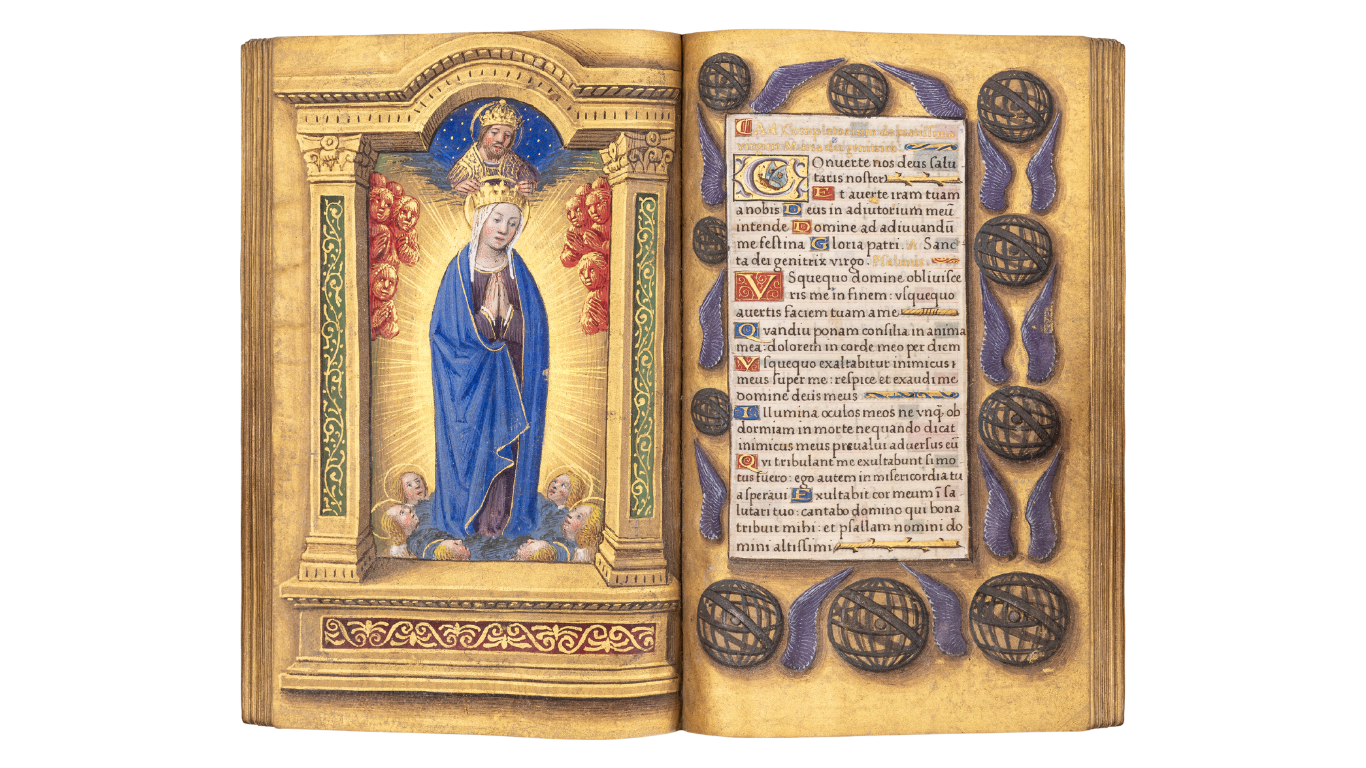 Ad Completorium de
Onuerte nos deus salu
taris noster
Et auerte iram tuam
a nobis Deus in adiutorium meū
intende Domine ad adiuuandū
me festina Gloria patri. A Sanc
ta dei genitrix virgo. Psalmus.
VSquequo domine obliuisce
ris me in finem: vsquequo
auertis faciem tuam a me
Quandiu ponam consilia in anima
mea: dolorem in corde meo per diem
Vsquequo exaltabitur inimicus
meus super me: respice et exaudi me
domine deus meus
Illumina oculos meos ne vnq̄ ob
dormiam in morte nequando dicat
inimicus meus preualui aduersus eū
Qui tribulant me exultabunt si mo
tus fuero: ego autem in misericordia tu
a speraui Exultabit cor meum ī sa
lutari tuo: cantabo domino qui bona
tribuit mihi: et psallam nomini do
mini altissimi